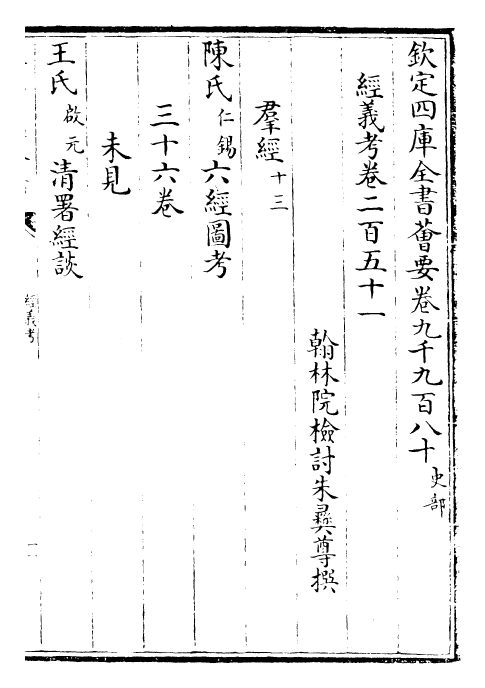 欽定四庫全書薈要卷九千九百八十 史部
經義考卷二百五十一
翰林院檢討朱彝尊撰
羣經 十三
陳氏 仁錫 六經圖考
三十六卷
未見
王氏 啟元 清署經談
經義考
一